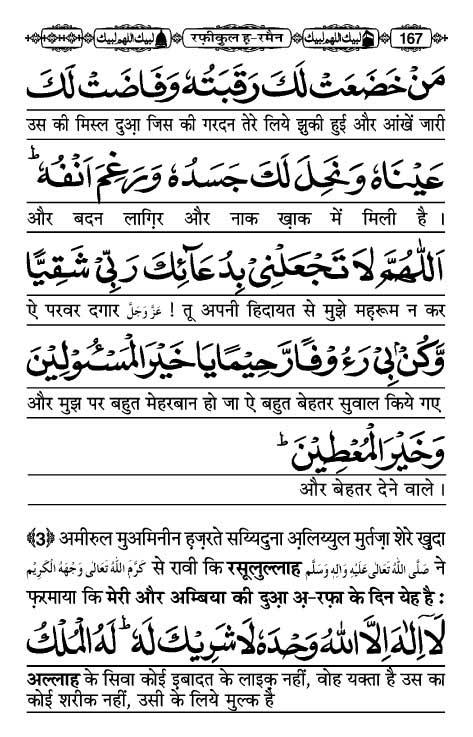 لبيك اللهم لبيك रफ़ीकुल ह-रमैन لبيك اللهم لبيك 167
مَنْ خَضَعَتْ لَكَ رَقَبَتُهٗ وَفَاضَتْ لَكَ
उस की मिस्ल दुआ़ जिस की गरदन तेरे लिये झुकी हुई और आंखें जारी
عَيْنَاهُ وَنَحِلَ لَكَ جَسَدُهٗ وَرَغِمَ اَنْفُهٗ ؕ
और बदन लाग़िर और नाक ख़ाक में मिली है ।
اَللّٰهُمَّ لَا تَجْعَلْنِيْ بِدُعَآئِكَ رَبِّيْ شَقِيًّا
ऐ परवर दगार عَزَّوَجَلَّ ! तू अपनी हिदायत से मुझे मह़रूम न कर
وَّكُنْۢ بِيْ رَءُوْفًا رَّحِيْمًا يَا خَيْرَ الْمَسْـُٔوْلِيْنَ
और मुझ पर बहुत मेहरबान हो जा ऐ बहुत बेहतर सुवाल किये गए
وَخَيْرَ الْمُعْطِيْنَ ؕ
और बेहतर देने वाले ।
﴾3﴿ अमीरुल मुअमिनीन ह़ज़रते सय्यिदुना अ़लिय्युल मुर्तज़ा शेरे खुदा
كَرَّمَ اللّٰهُ تَعَالٰى وَجْهَهُ الْكَرِيْم से रावी कि रसूलुल्लाह صَلَّى اللّٰهُ تَعَالٰى عَلَيْهِ وَاٰلِهٖ وَسَلَّم ने
फ़रमाया कि मेरी और अम्बिया की दुआ़ अ़-रफ़ा के दिन येह है :
لَآ اِلٰهَ اِلَّا اللّٰهُ وَحْدَهٗ لَا شَرِيْكَ لَهٗ ؕ لَهُ الْمُلْكُ
अल्लाह के सिवा कोई इ़बादत के लाइक़ नहीं, वोह यक्ता है उस का
कोई शरीक नहीं, उसी के लिये मुल्क है